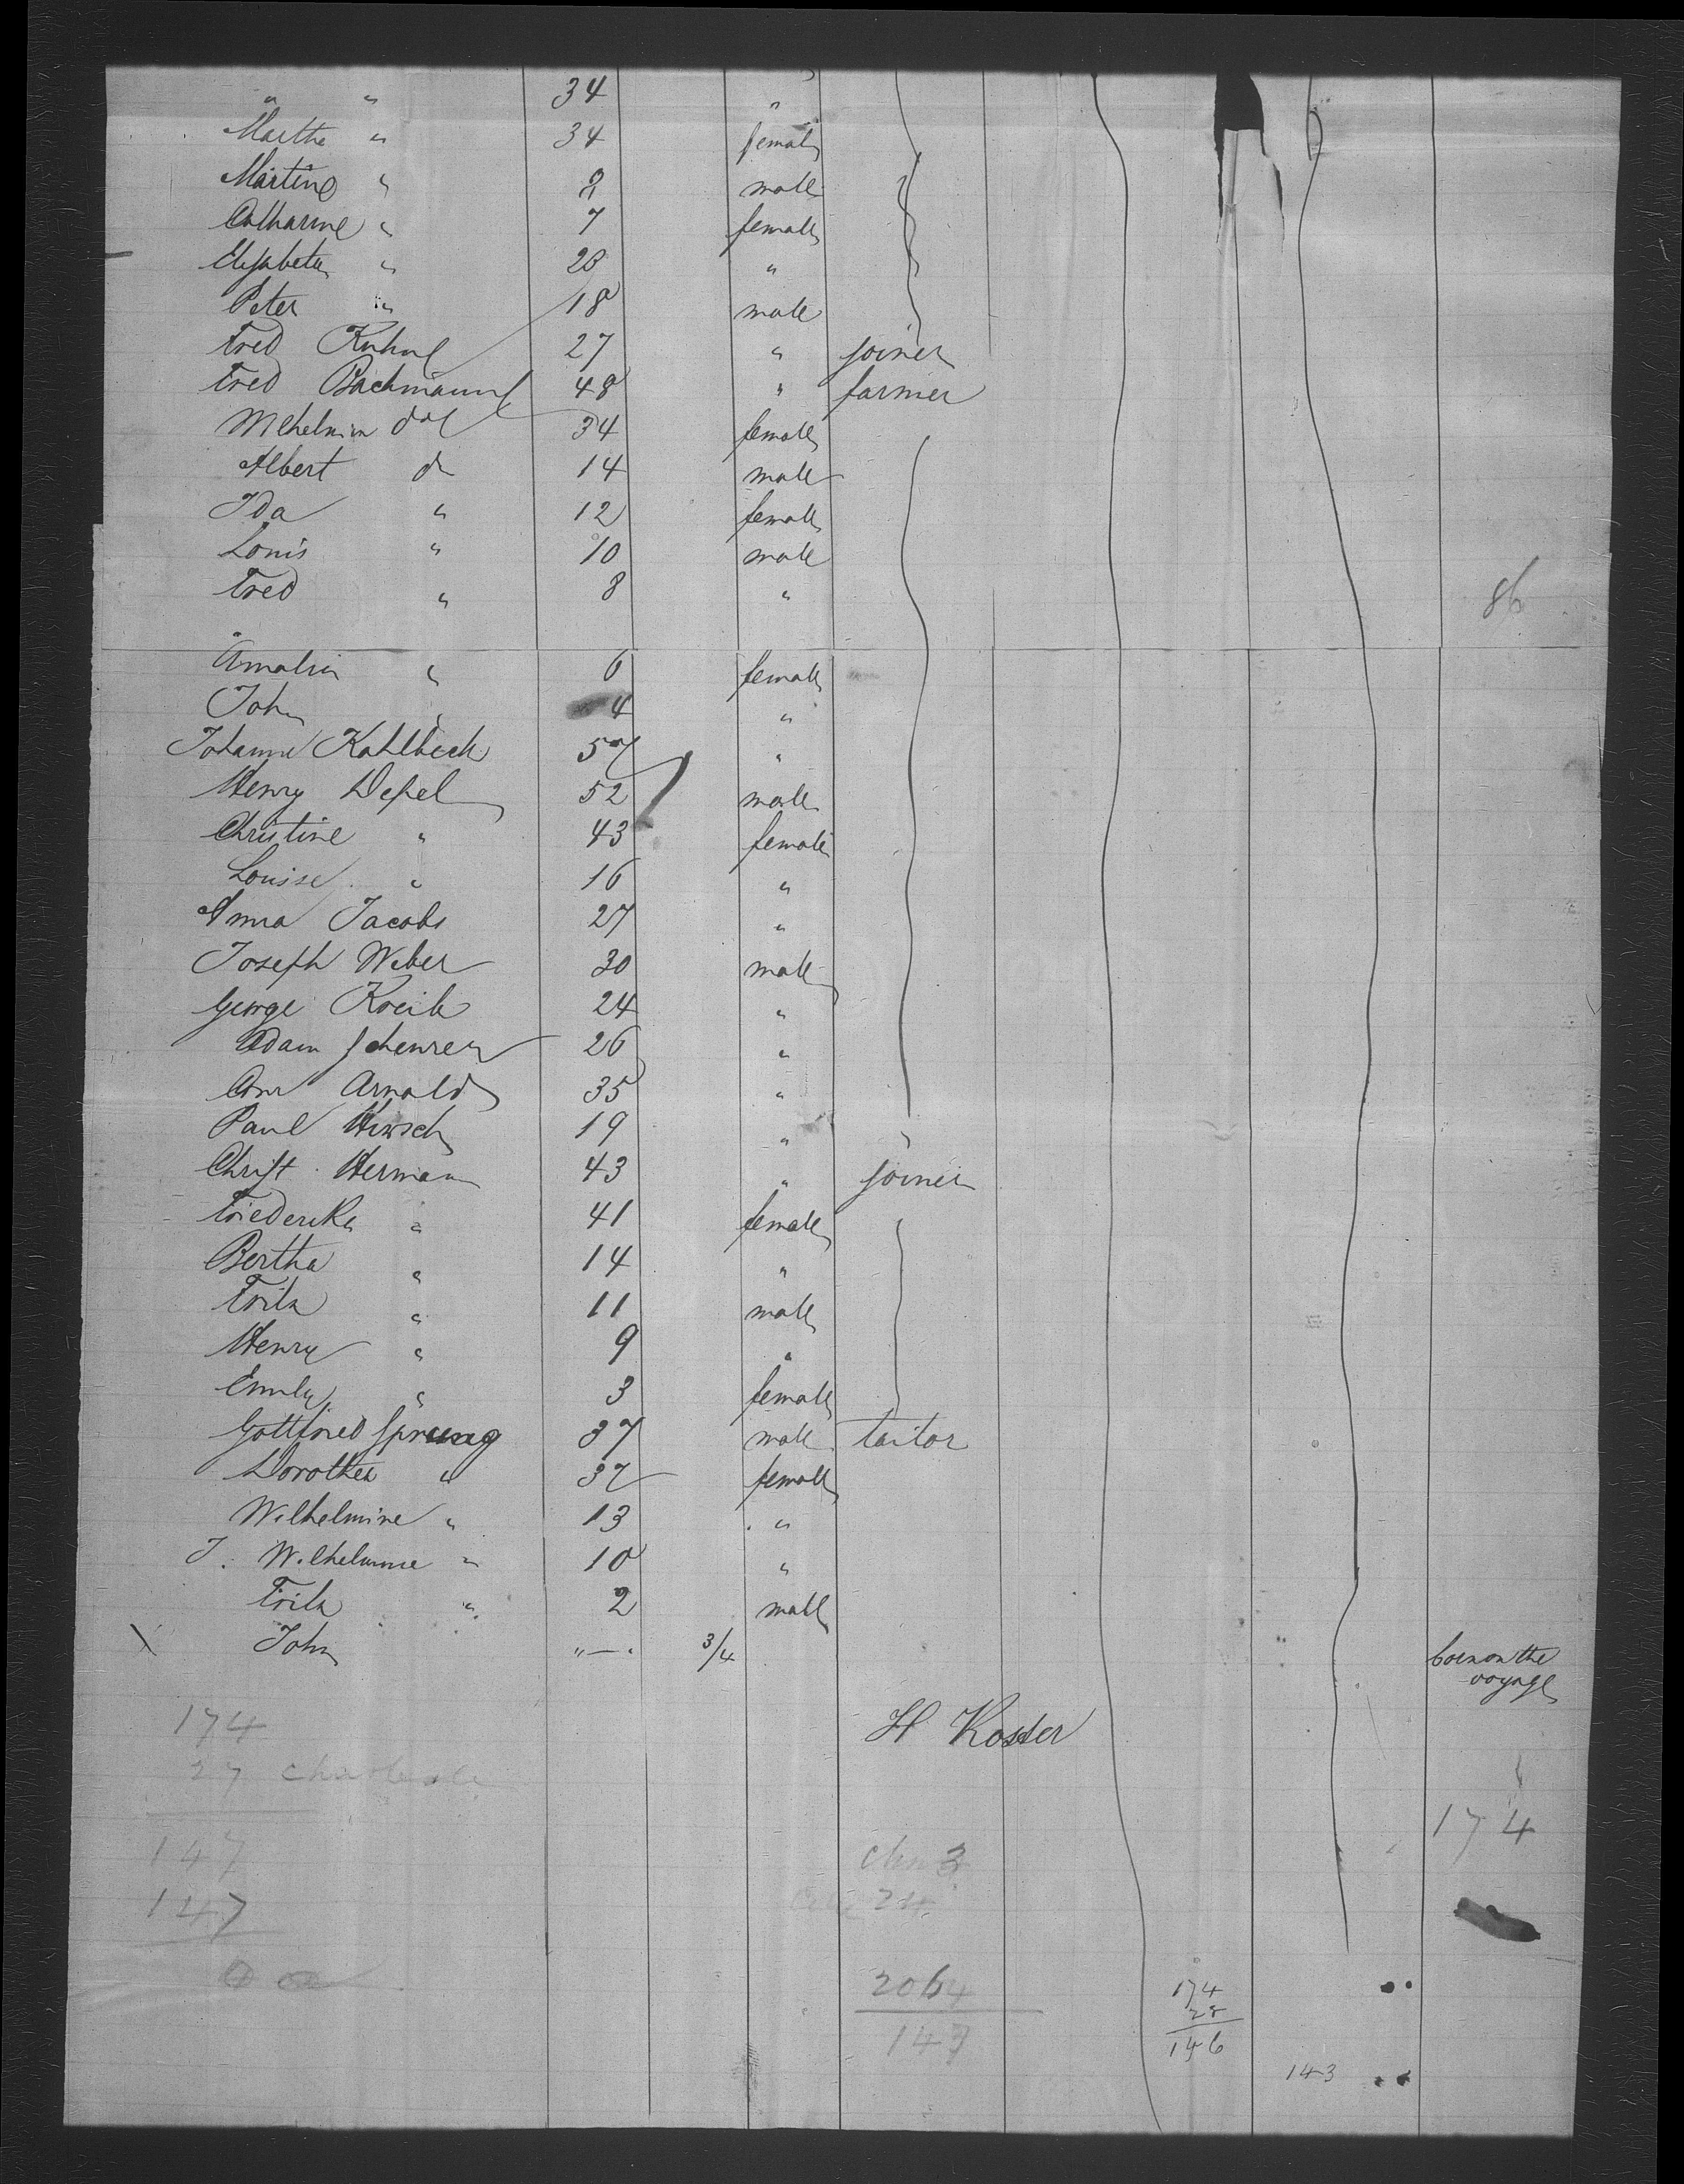 " " 34 "
Martha " 34 female
Martino " 9 male
Catharine " 7 female
Elisabeta " 20 "
Peter " 18 male
Fred Kuhnl 27 " joiner
Fred Bachmann 48 " farmer
Wlhelmin do 34 female
Albert do 14 male
Ida " 12 female
Louis " 10 male
Fred " 8 "
86
Amalia " 6 female
John " 4 "
Johanne Kahlbeck 57 "
Henry Depel 52 male
Christine " 43 female
Louise " 16 "
Anna Jacobs 27 "
Joseph Weber 30 male
George Kreik 24 "
Adam Schenrer 26 "
Arnold 35 "
Paul Hirsch 19 "
Christ. Herman 43 " joiner
Friederike " 41 female
Bertha " 14 "
Fritz " 11 male
Henry " 9 "
Emily " 3 female
Gottfried Sprung 37 male tailor
Dorothea " 37 female
Wilhelmine " 13 "
J. Wilhelmine " 10 "
Fritz " 2 male
John "—" 3/4 born on the
voyage
H Koster
174
27
174
147
147
3
24
206
147
174
28
146
143